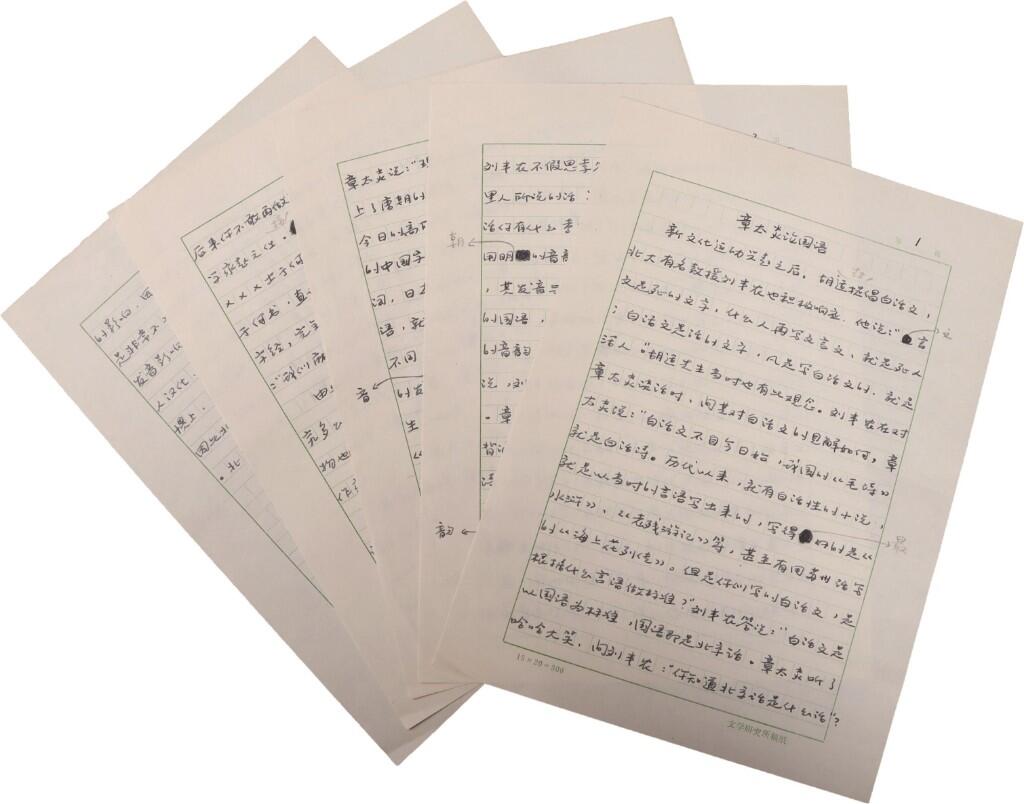 1
章太炎论国语
新文化运动兴起之后，胡适提倡白话文，
北大有名教授刘半农也积极响应。他说："言
文是死的文字，什么人再写文言文、就是死人
；白话文是活的文字，凡是写白话文的，就是
活人"胡适先生当时也有此观念。刘半农在对
章太炎谈话时、问其对白话文的见解如何，章
太炎说："白话文不自今日始，我国的《毛诗》
就是白话诗。历代以来，就有白话性的小说，
就是以当时的言语写出来的，写得好的是《
水浒》、《老残游记》等，甚至有用苏州话写
的《海上花列传》。但是你们写的白话文，是
根据什么言语做标准？"刘半农答说："白话文是
以国语为标准，国语即是北京话。章太炎听了
哈哈大笑、问刘半农："你知道北京话是什么话"？
文
最
15×20=300
文学研究所稿纸
刘半农不假思
里人所说的话：
话何有什么
用明的音
，其发音
的国语，
的音韵
说，
。章
背
语
朝
韵
章太炎说："
上了唐朝的
今日的高
的中国字
词，日
语，就
不同
的发
生
音
后来你不敢再做
×××出于何
于何书，真
字经，完
："我们麻
由
物也
的影响，因
是非常不
发音影
人汉化
惯上，
因此
。北